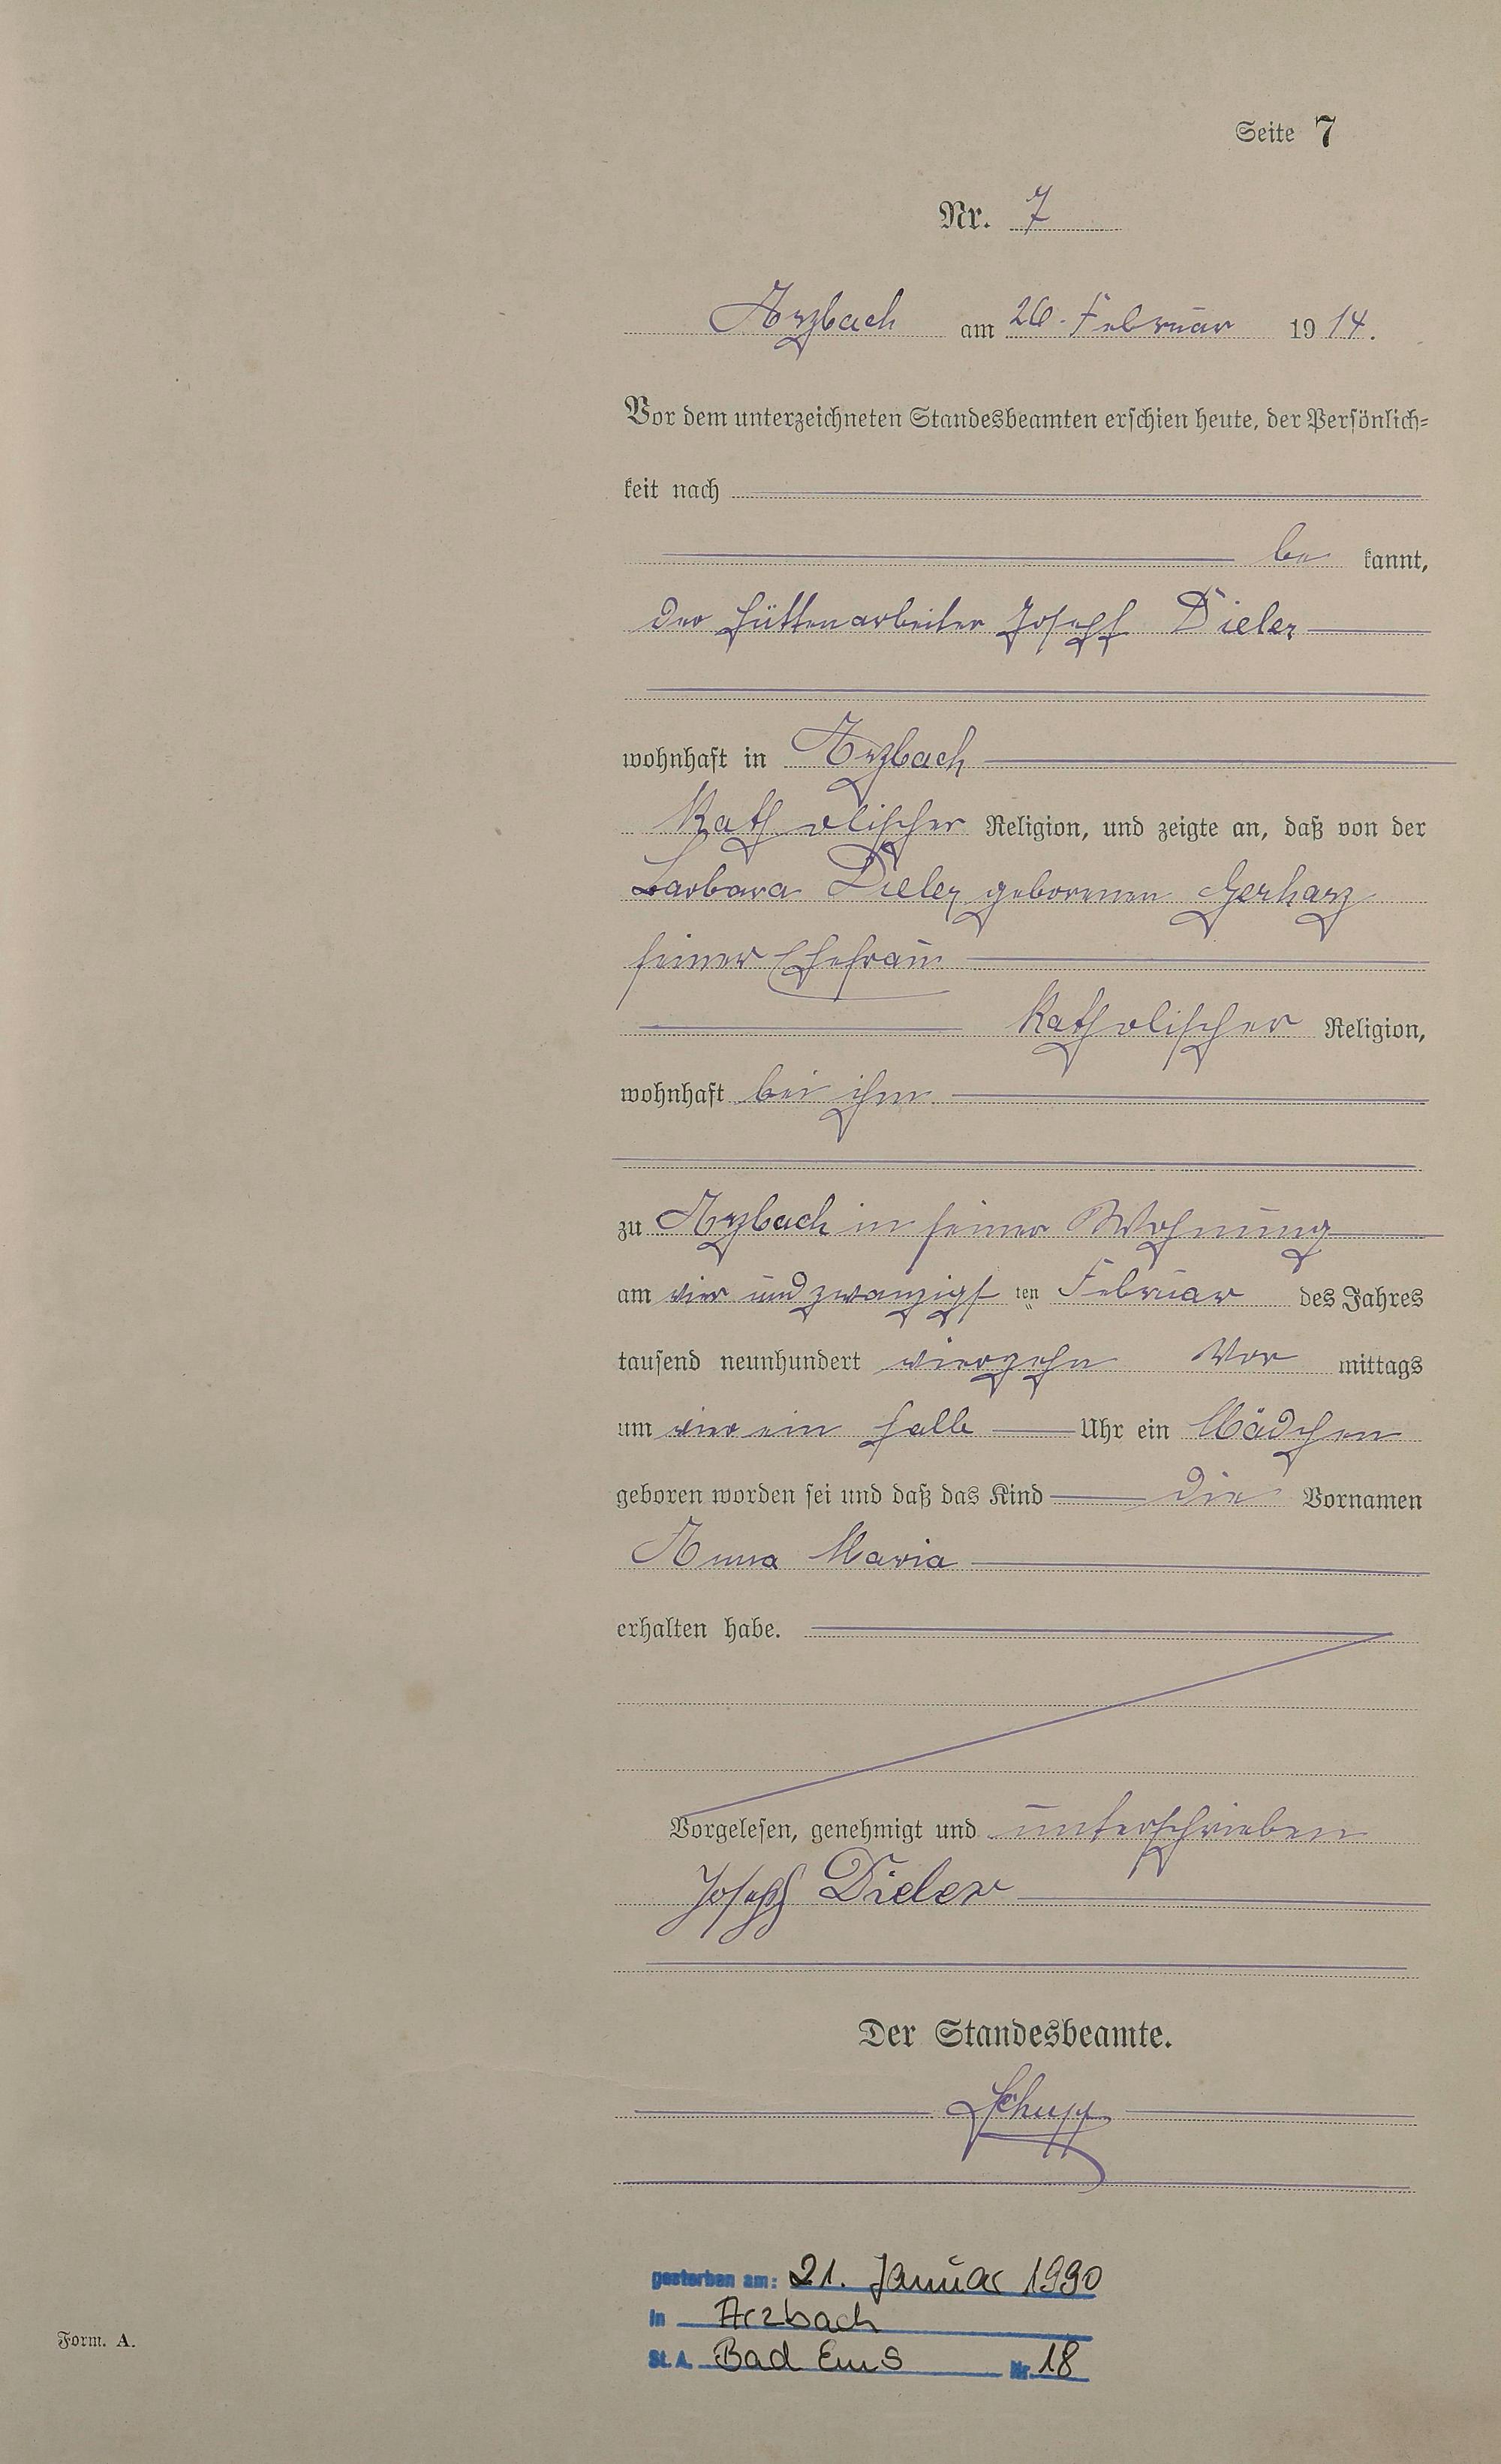 Seite 7
Nr. 7
Arzbach am 26. Februar 1914.
Vor dem unterzeichneten Standesbeamten erschien heute, der Persönlich=
keit nach
be kannt,
der Hüttenarbeiter Joseph Dieler
wohnhaft in Arzbach
katholischer Religion, und zeigte an, daß von der
Barbara Dieler geborenen Gerharz
seiner Ehefrau
katholischer Religion,
wohnhaft bei ihm
zu Arzbach in seiner Wohnung
am vier und zwanzigs ten Februar des Jahres
tausend neunhundert vierzehn Vor mittags
um vier ein halb Uhr ein Mädchen
geboren worden sei und daß das Kind die Vornamen
Anna Maria
erhalten habe.
Vorgelesen, genehmigt und unterschrieben
Joseph Dieler
Der Standesbeamte.
Schupp
gestorben am: 21. Januar 1990
in Arzbach
St. A. Bad Ems Nr. 18
Form. A.